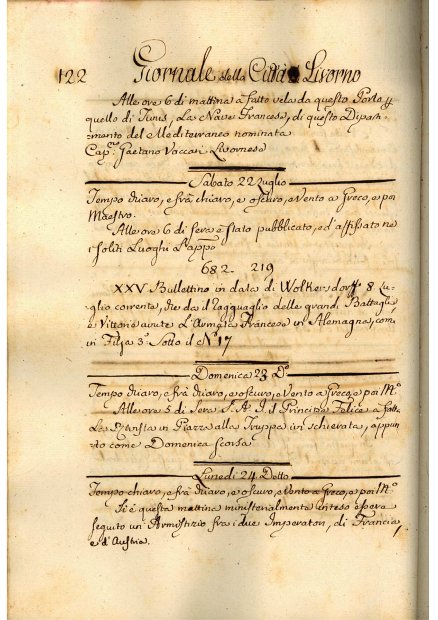 122 Giornale della Città di Livorno
Alle ore 6 di mattina à fatto vela da questo Porto p
quello di Tunis, La Nave Francese, di questo Dipart-
imento del Mediterraneo nominata
Cap. Gaetano Vaccari Livornese
Sabato 22 Luglio
Tempo chiaro, e frà chiaro, e oscuro, e Vento a Greco, e poi
Maestro.
Alle ore 6 di sera è stato pubblicato, ed affissato ne
soliti Luoghi L'app.
682. 219
XXV Bullettino in data di Wolkersdorf 8 Lu-
glio corrente, che da il ragguaglio delle grandi Battaglie
e Vittorie avute L'Armata Francese in Alemagna, come
in Filza 3ª Sotto de N° 17
Domenica 23 Dº
Tempo chiaro, e frà chiaro, e oscuro, e Vento a Greco, e poi M.º
Alle ore 5 di Sera S. A. I. il Principe Felice à fatto
La Rivista in Piazza alla Truppa ivi schierata, appun-
to come Domenica scorsa
Lunedì 24 Detto
Tempo chiaro, e frà chiaro, e oscuro, e Vento a Greco, e poi M.º
Si è questa mattina ministerialmente inteso essere
seguito un Armistizio fra i due Imperatori, di Francia,
e d'Austria.